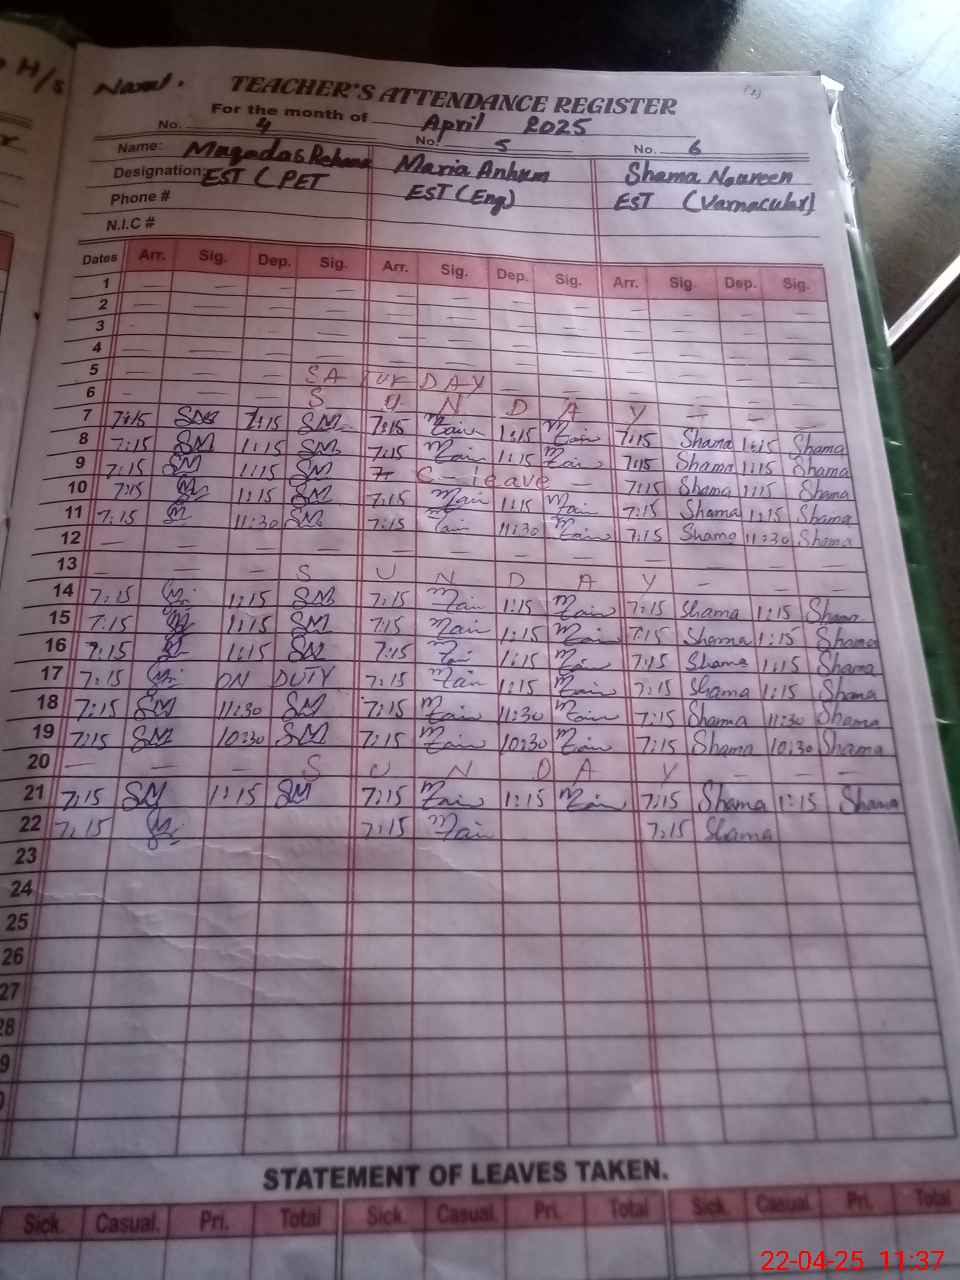 H/s
TEACHER'S ATTENDANCE REGISTER
For the month of April 2025
No. 4 No. 5 No. 6
Name: Rehana Maria Anhum Shama Noureen
Designation: EST (PET EST (Eng) EST (Varnacular)
Phone #
N.I.C #
Dates Arr. Sig. Dep. Sig. Arr. Sig. Dep. Sig. Arr. Sig. Dep. Sig.
1 — — — — — — — — — — — —
2 — — — — — — — — — — — —
3 — — — — — — — — — — — —
4 — — — — — — — — — — — —
5 — — — SATURDAY — — — — —
6 — — — S U N D A Y — — —
7 7:15 SM 1:15 SM 7:15 1:15 7:15 Shama 1:15 Shama
8 7:15 SM 1:15 SM 7:15 1:15 7:15 Shama 1:15 Shama
9 7:15 SM 1:15 SM C-leave — 7:15 Shama 1:15 Shama
10 7:15 1:15 SM 7:15 1:15 7:15 Shama 1:15 Shama
11 7:15 11:30 SM 7:15 11:30 7:15 Shama 11:30 Shama
12 — — — — — — — — — — — —
13 — — — S U N D A Y — — —
14 7:15 1:15 SM 7:15 1:15 7:15 Shama 1:15 Shama
15 7:15 1:15 SM 7:15 1:15 7:15 Shama 1:15 Shama
16 7:15 1:15 SM 7:15 1:15 7:15 Shama 1:15 Shama
17 7:15 ON DUTY 7:15 1:15 7:15 Shama 1:15 Shama
18 7:15 SM 11:30 SM 7:15 11:30 7:15 Shama 11:30 Shama
19 7:15 SM 10:30 SM 7:15 10:30 7:15 Shama 10:30 Shama
20 — — — S U N D A Y — — —
21 7:15 SM 1:15 SM 7:15 1:15 7:15 Shama 1:15 Shama
22 7:15 7:15 7:15 Shama
23
24
25
26
27
28
9
STATEMENT OF LEAVES TAKEN.
Sick. Casual. Pri. Total Sick. Casual. Pri. Total Sick. Casual. Pri. Total
22-04-25 11:37